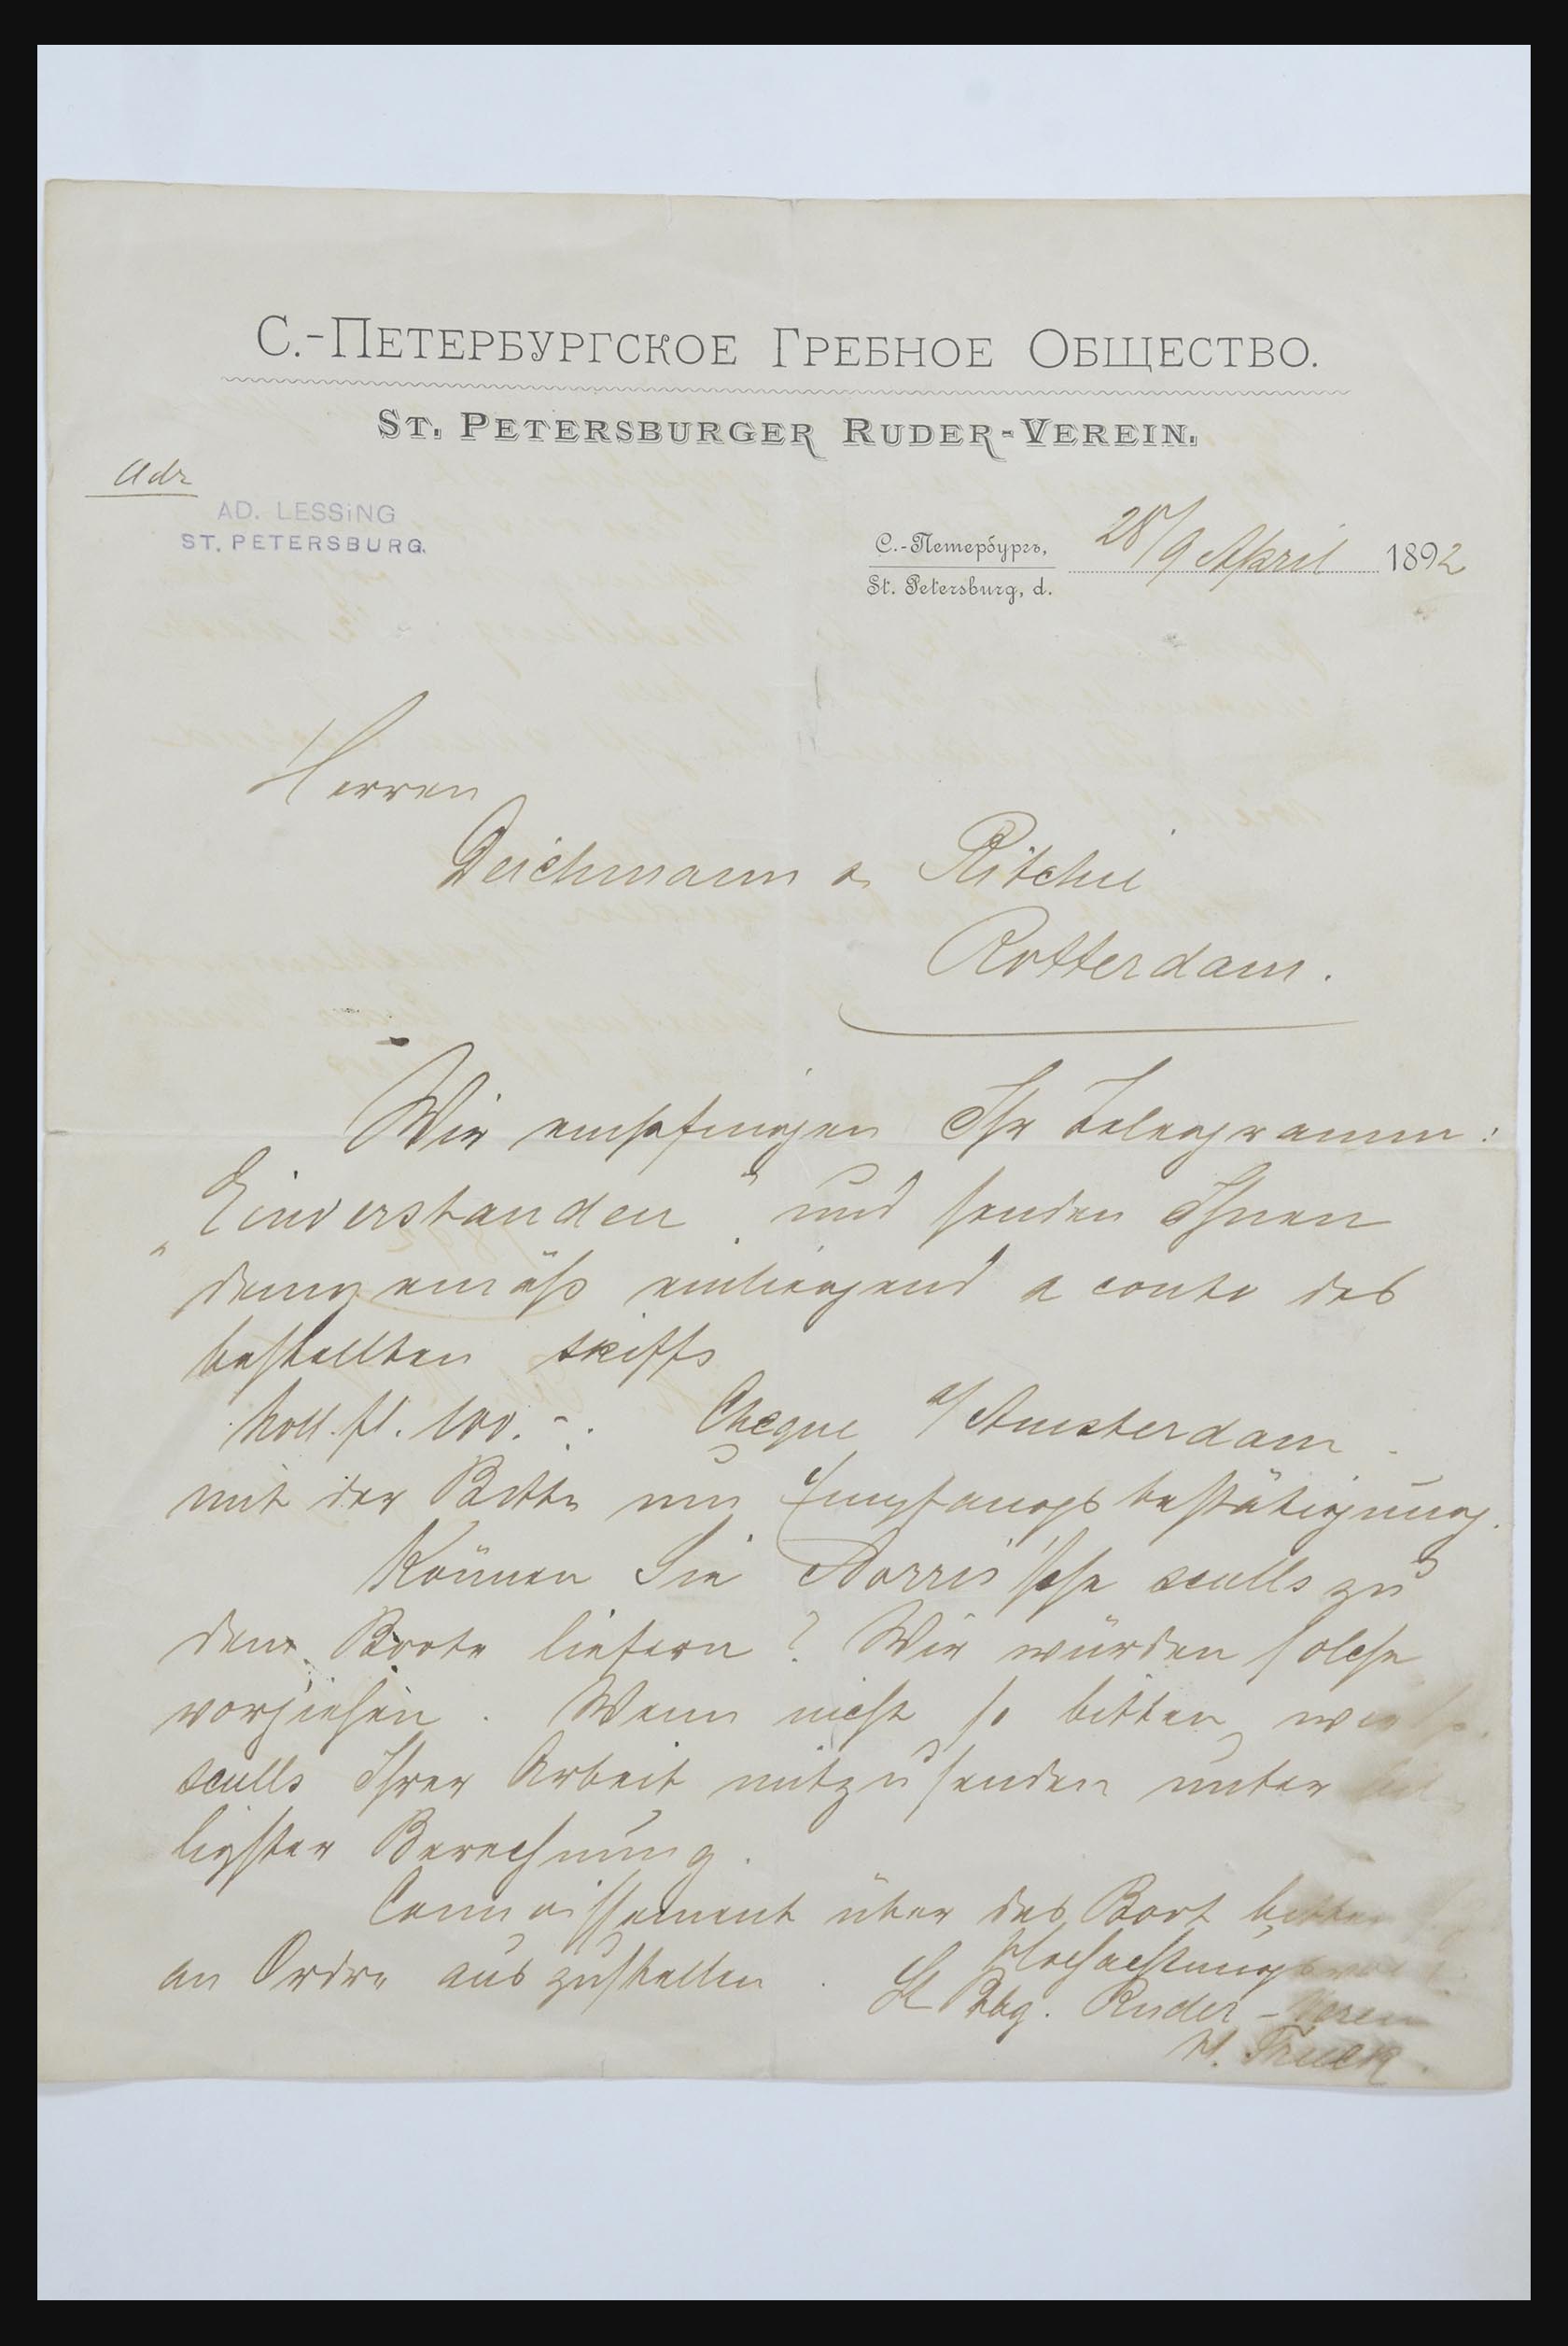 С.-Петербургское Гребное Общество.
St. Petersburger Ruder-Verein.
Adr
AD. LESSiNG
ST. PETERSBURG.
С.-Петербургъ,
St. Petersburg, d.
28/9 April 1892
Herren
Deichmann & Ritchie
Rotterdam.
Wir empfingen Ihr Telegramm:
„Einverstanden" und senden Ihnen
demgemäß einliegend a conto des
bestellten skiffs
holl. fl. 100.-. Cheque a/Amsterdam
mit der Bitte um Empfangsbestätigung.
Können Sie Norris'sche sculls zu
dem Boote liefern? Wir würden solche
vorziehen. Wenn nicht so bitten wir
sculls Ihrer Arbeit mitzusenden unter bil
ligster Berechnung.
Connoissement über das Boot bitten
an Ordre auszustellen.
Hochachtungsvoll
St Pbg. Ruder-Verein